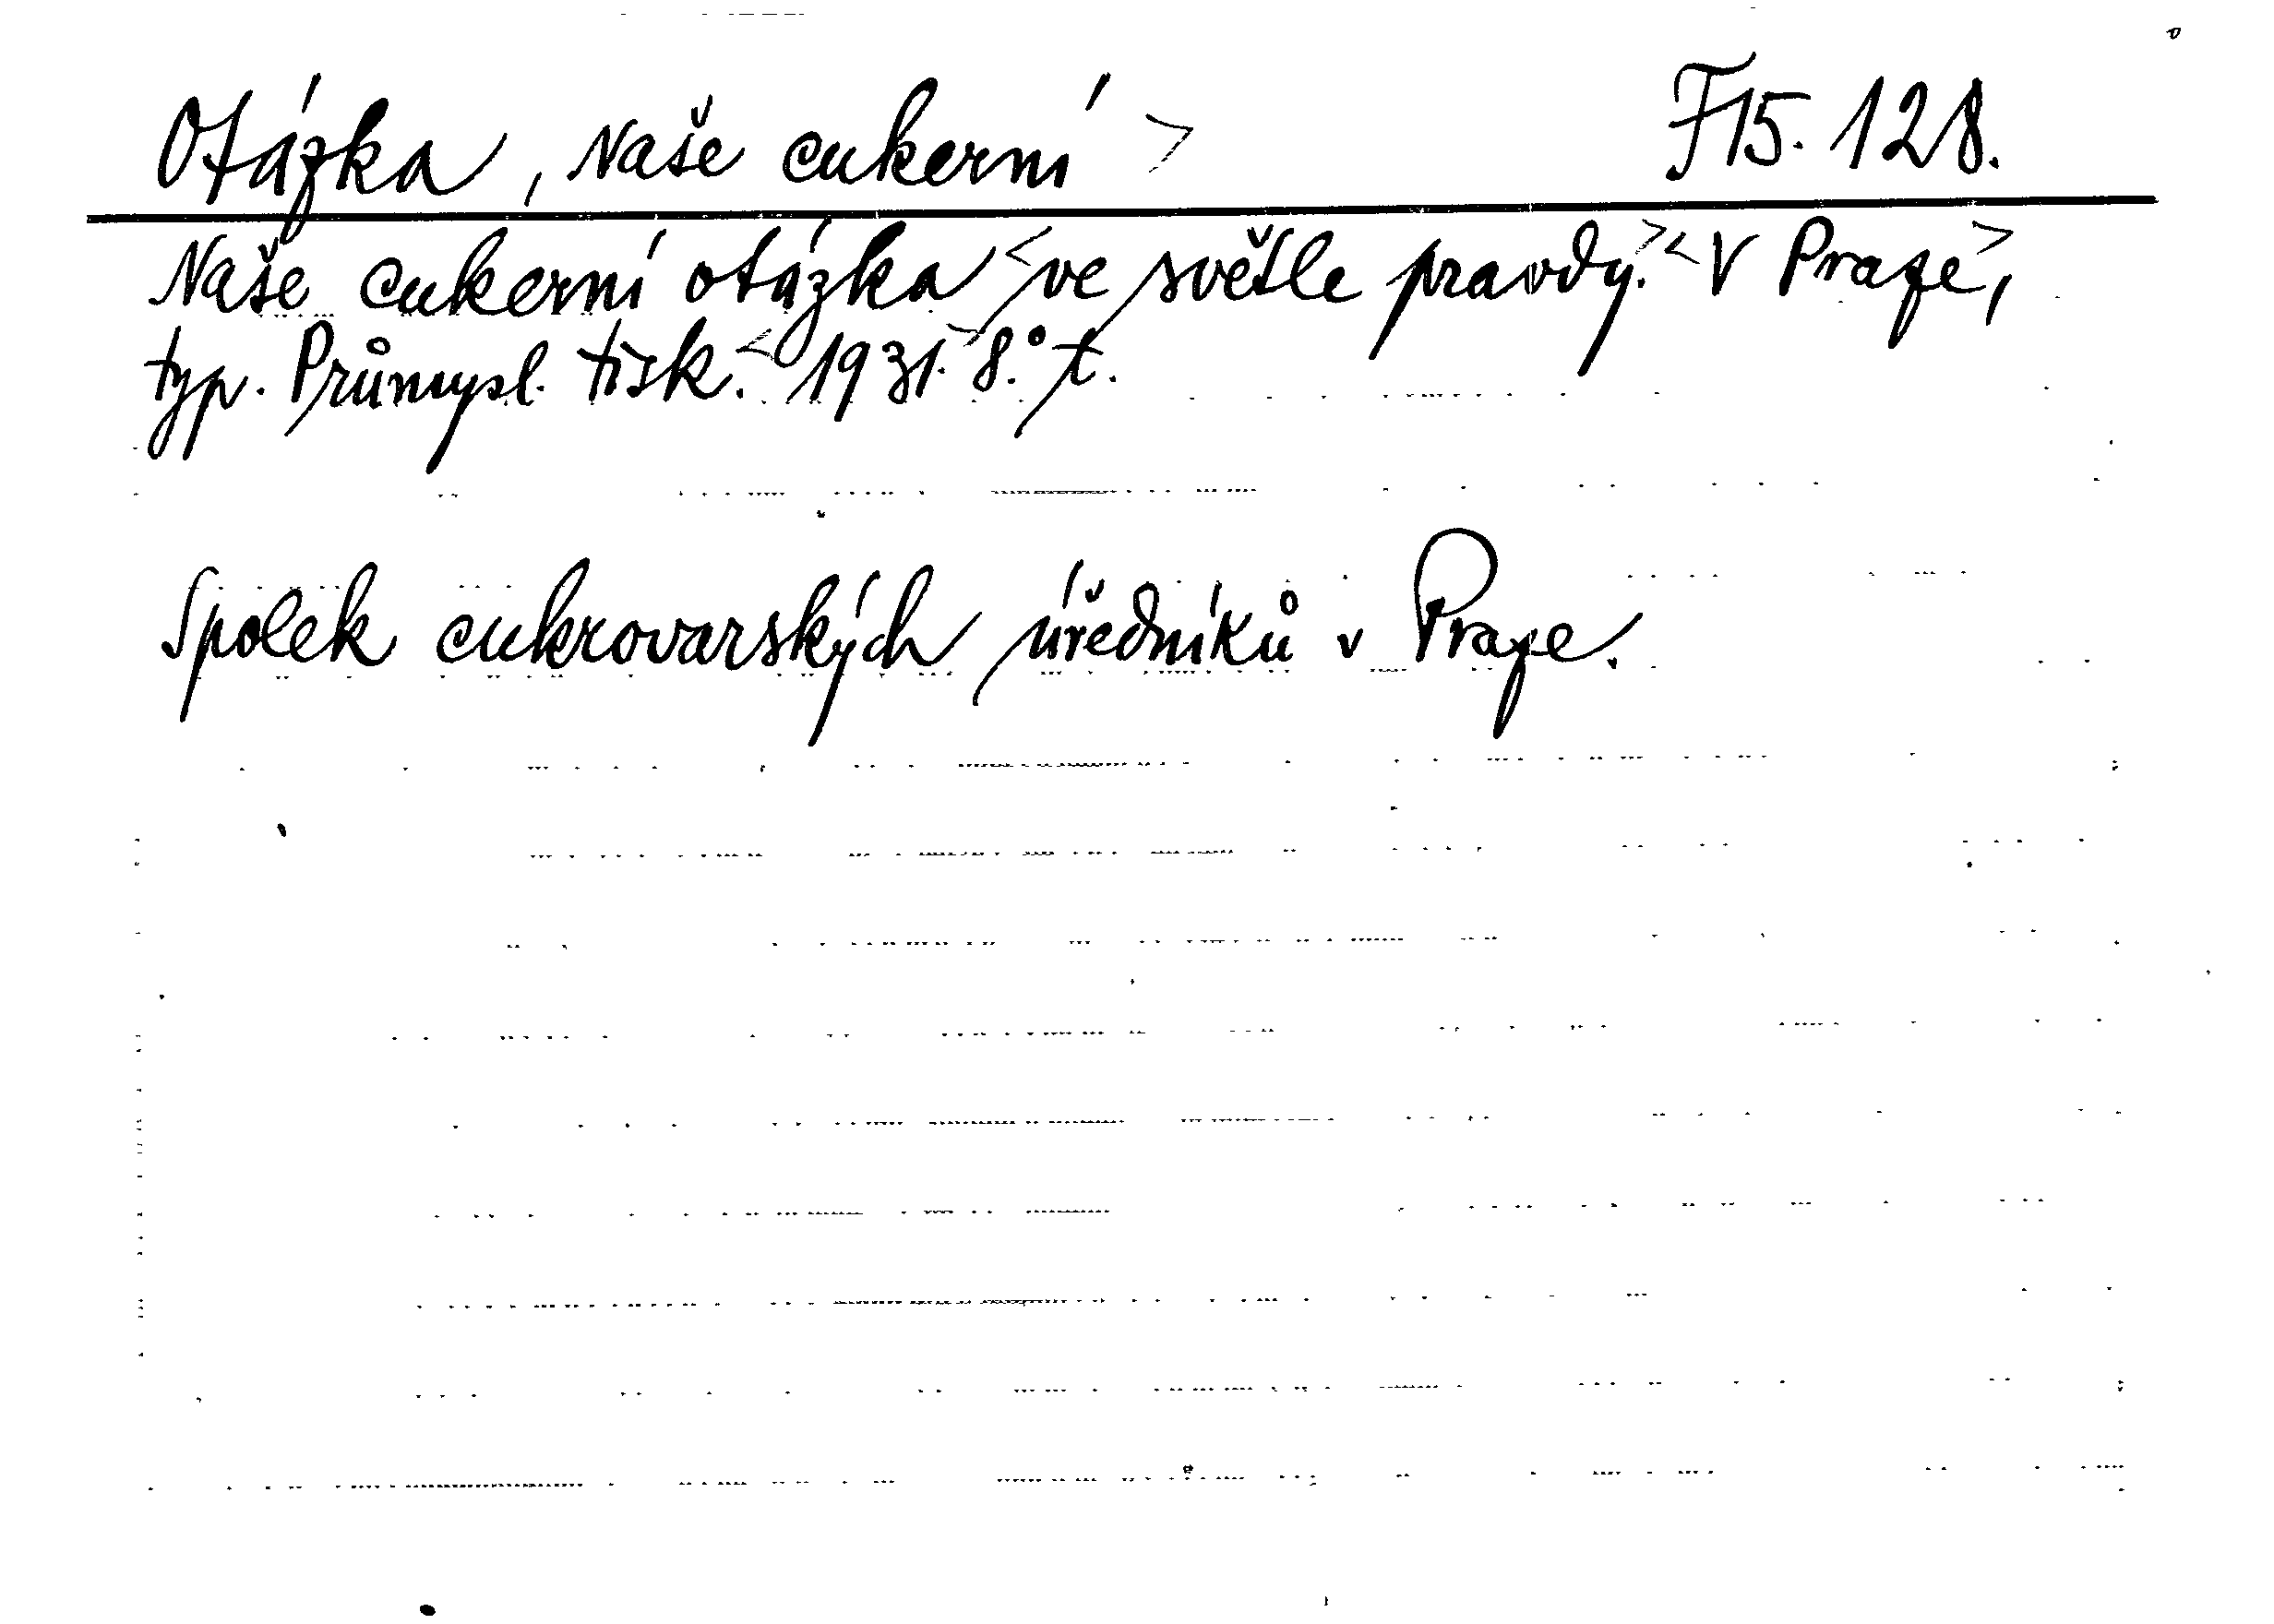 Otázka, Naše cukerní > F 15. 128.
Naše cukerní otázka < ve světle pravdy. > < V Praze >,
typ. Průmysl. tisk. < 1931. > 8.° t.
Spolek cukrovarských úředníků v Praze.